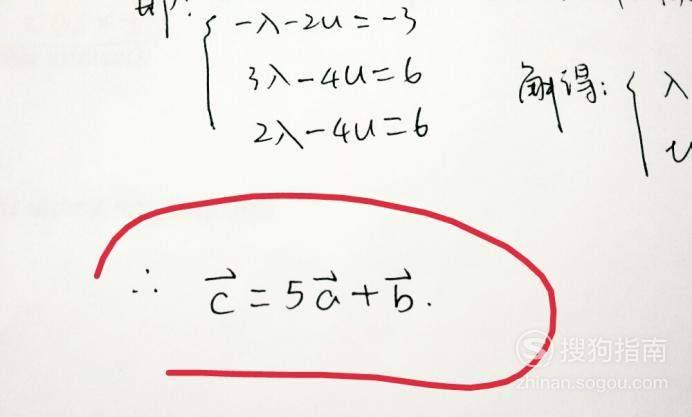 即:
-λ-2u=-3
3λ-4u=6
2λ-4u=6
解得: λ
u
∴ c⃗ = 5a⃗ + b⃗.
搜狗指南
zhinan.sogou.com